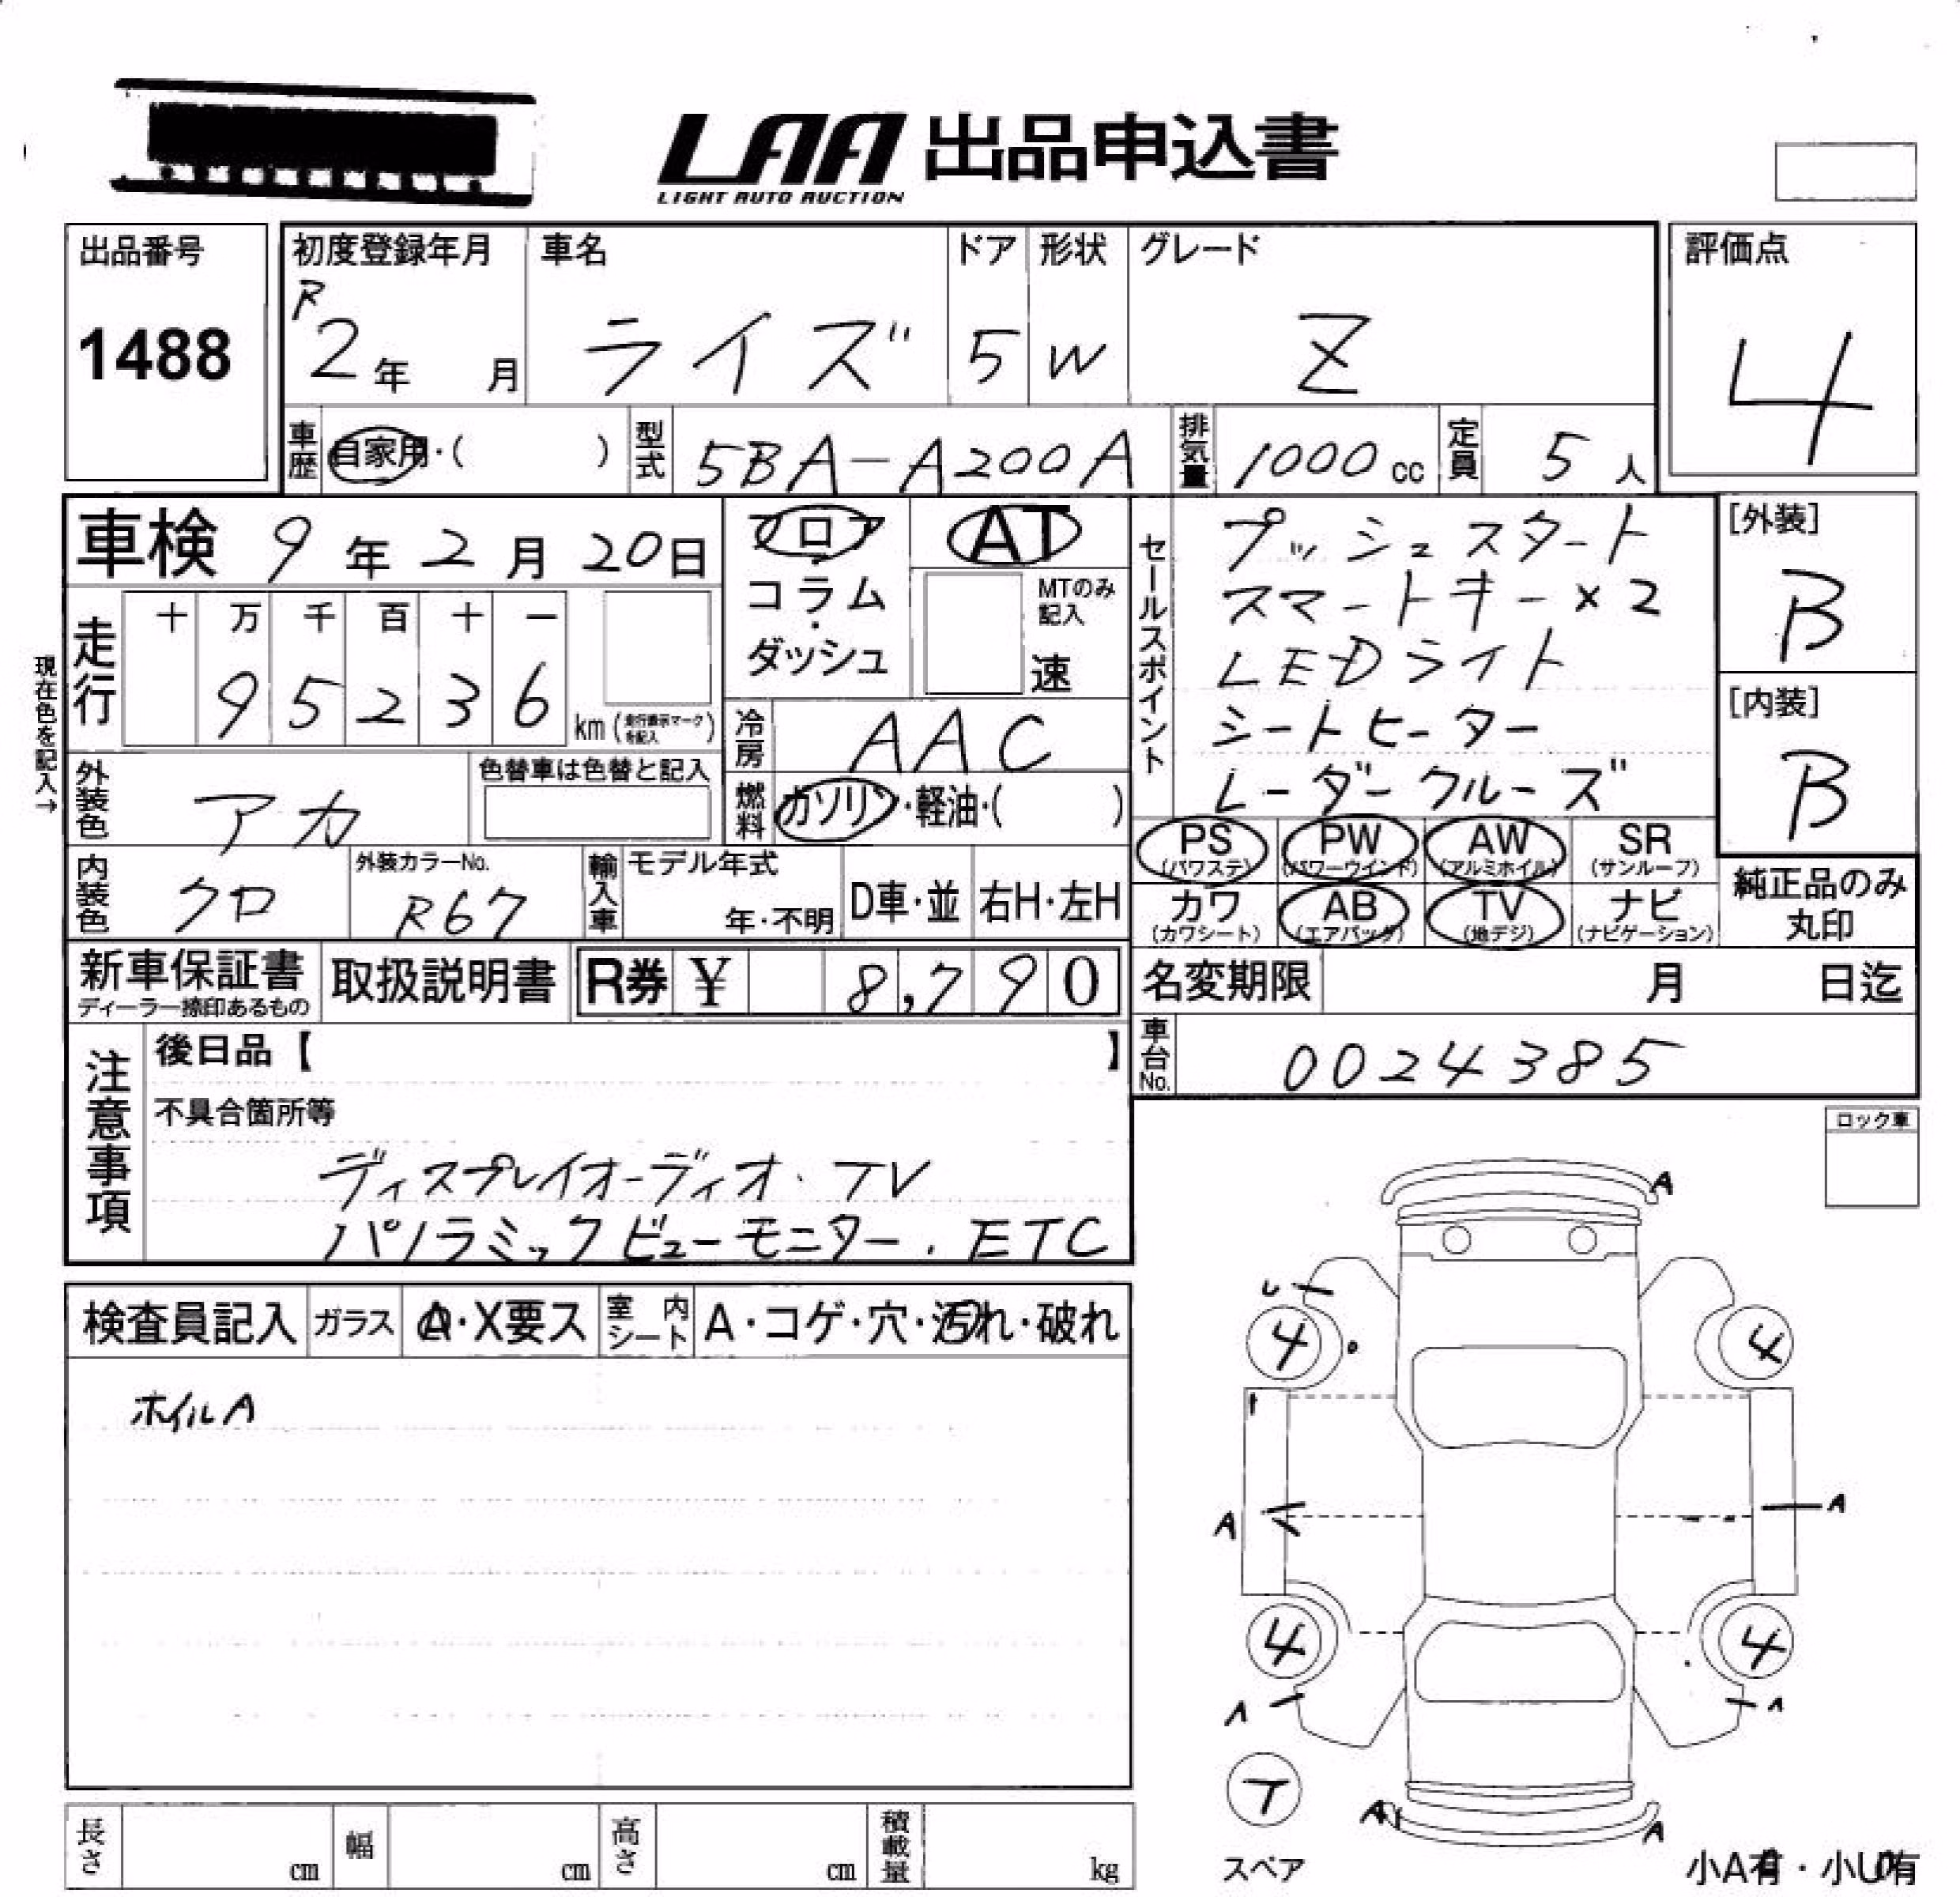 LAA 出品申込書
LIGHT AUTO AUCTION
出品番号
1488
初度登録年月
R
2年 月
車名
ライズ
ドア
5
形状
W
グレード
Z
評価点
4
車歴 自家用・( )
型式 5BA-A200A
排気量 1000 cc
定員 5 人
車検 9年 2月 20日
現在色を記入→
走行
十 万 千 百 十 一
9 5 2 3 6 km (走行表示マークを記入)
フロア・コラム・ダッシュ
AT
MTのみ記入
速
冷房 AAC
燃料 ガソリン・軽油・( )
外装色 アカ
色替車は色替と記入
内装色 クロ
外装カラーNo.
R67
輸入車 モデル年式
年・不明
D車・並
右H・左H
セールスポイント
プッシュスタート
スマートキー×2
LEDライト
シートヒーター
レーダークルーズ
[外装]
B
[内装]
B
PS (パワステ)
PW (パワーウインド)
AW (アルミホイル)
SR (サンルーフ)
カワ (カワシート)
AB (エアバッグ)
TV (地デジ)
ナビ (ナビゲーション)
純正品のみ
丸印
新車保証書
ディーラー捺印あるもの
取扱説明書
R券 ¥ 8,790
名変期限 月 日迄
車台No. 0024385
注意事項
後日品【 】
不具合箇所等
ディスプレイオーディオ・TV
パノラミックビューモニター.ETC
ロック車
検査員記入
ガラス A・X要ス
室内シート A・コゲ・穴・汚れ・破れ
ホイルA
A
4
4
A
A
4
4
A
A
T
スペア
A
A
小A有・小U有
長さ cm
幅 cm
高さ cm
積載量 kg